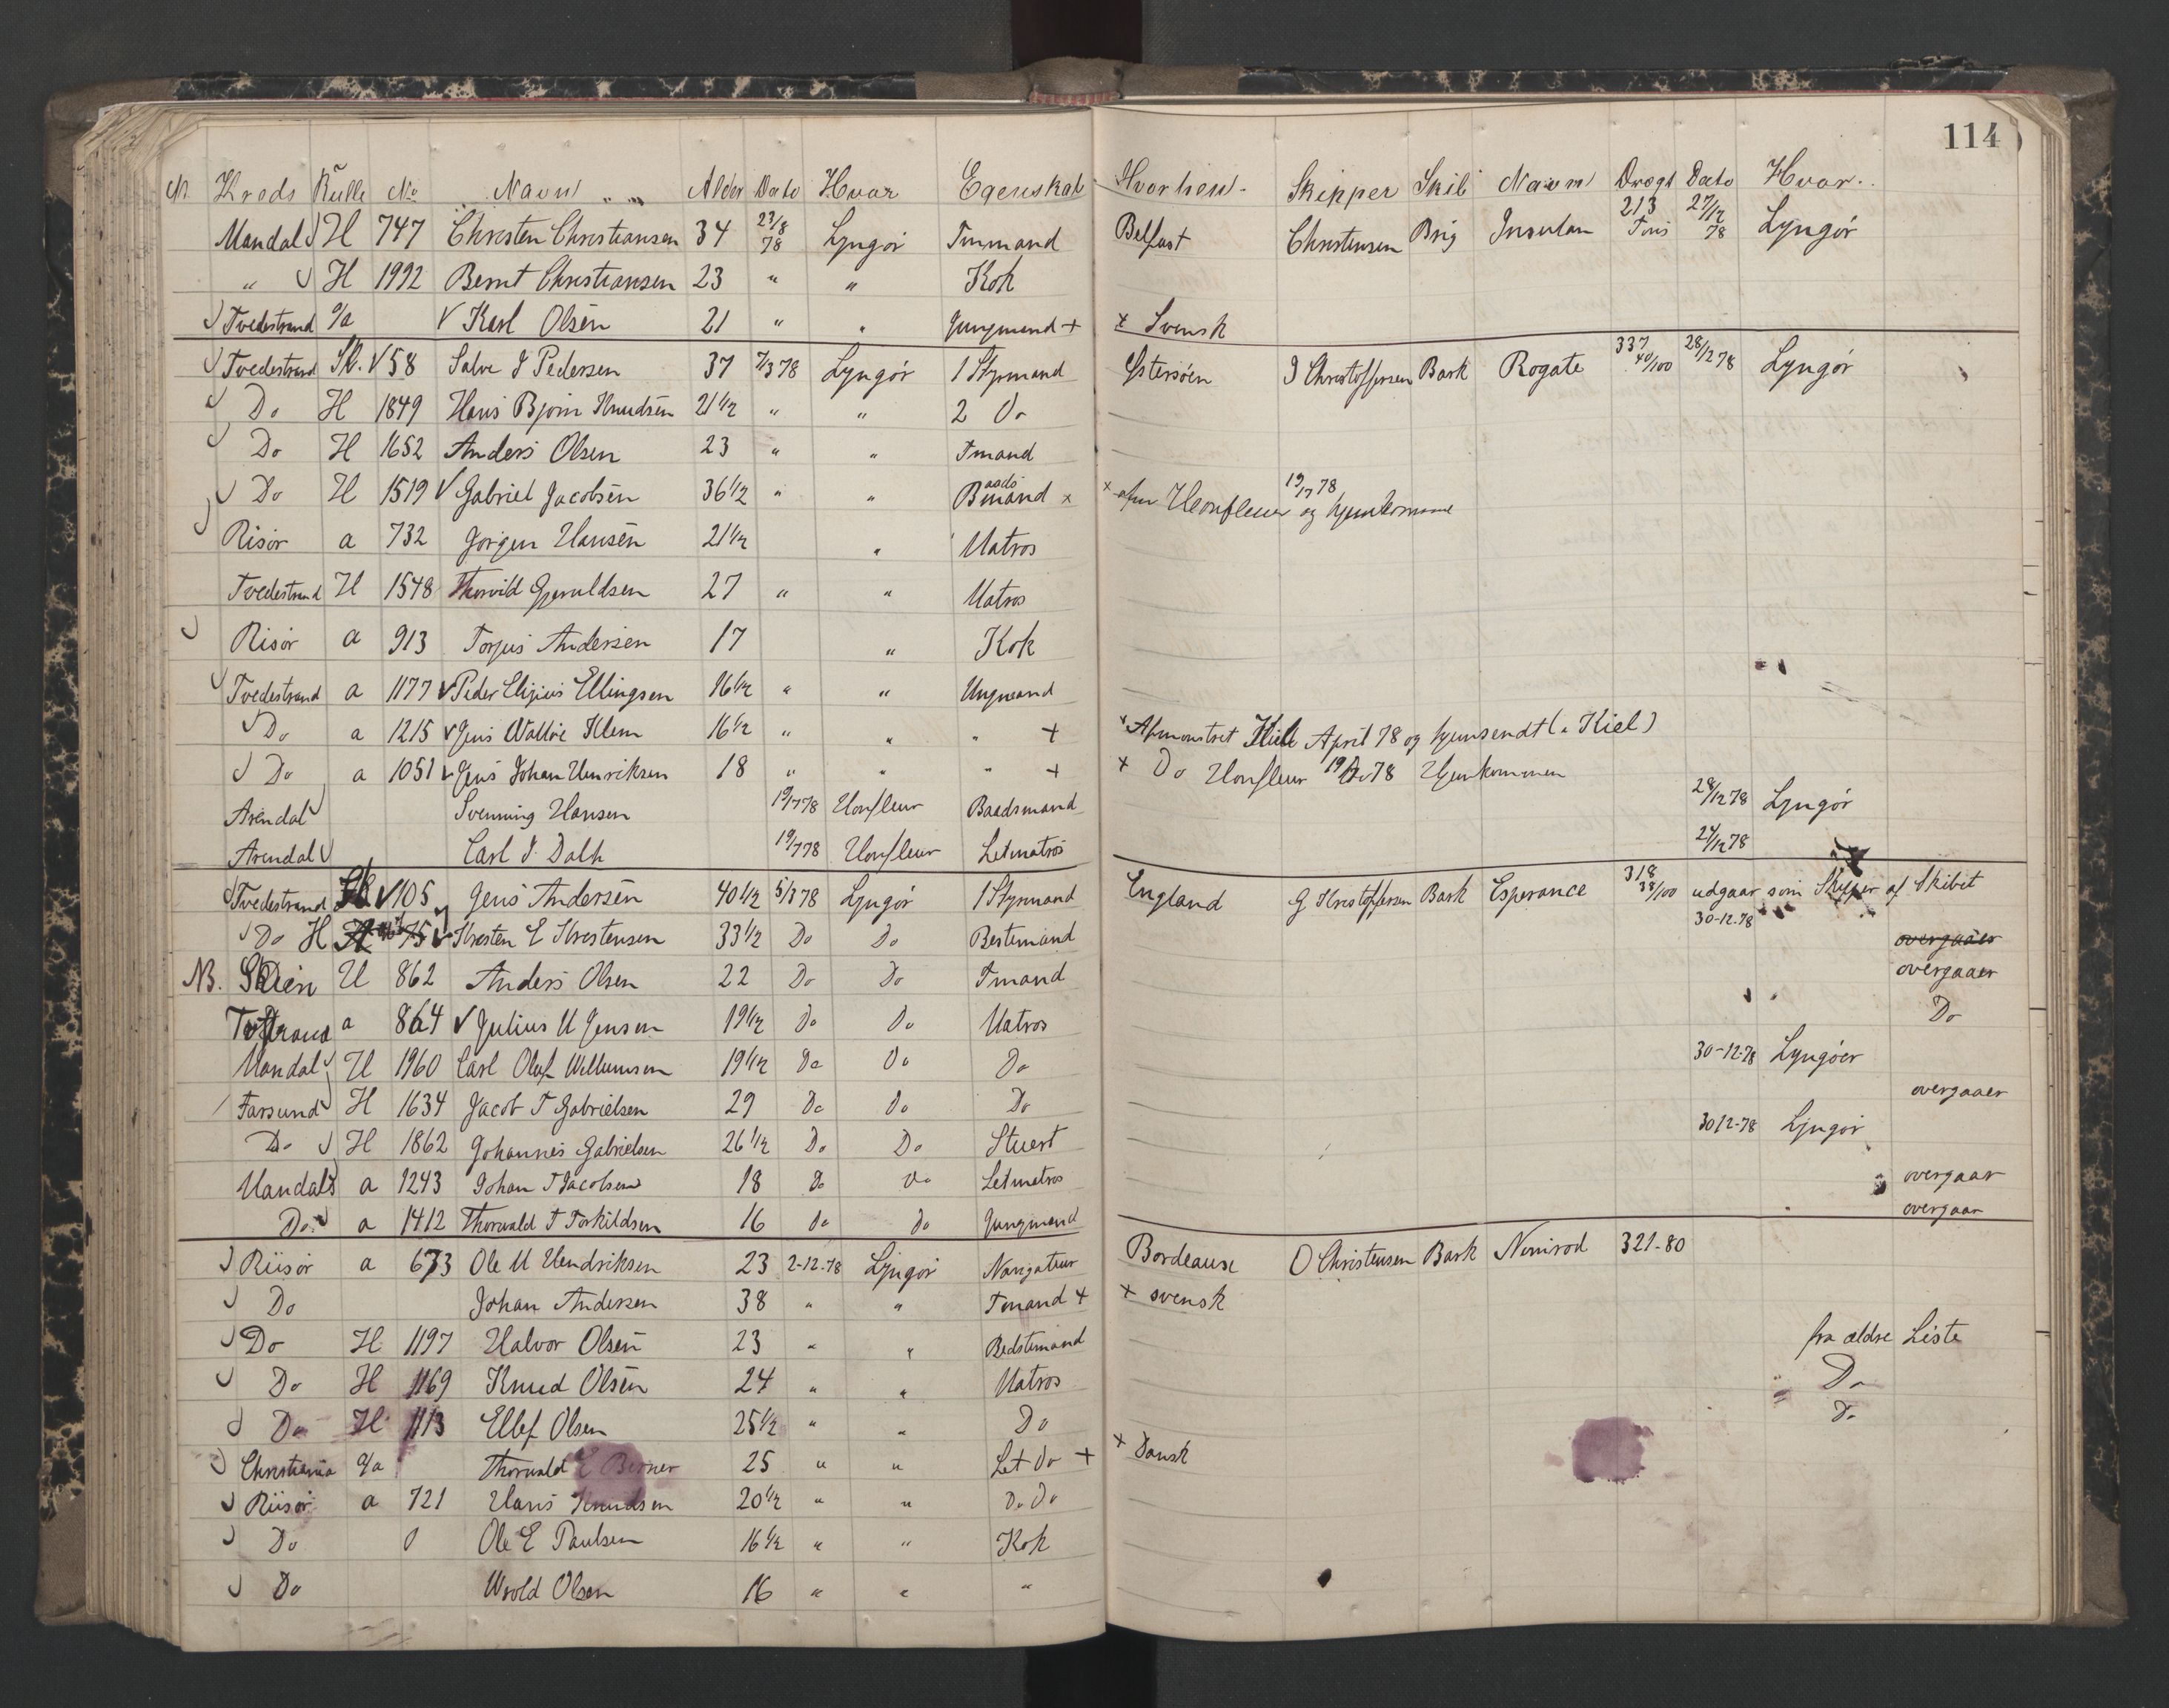 114
N. Kreds Rulle No Navn Alder Dato Hvor Egenskab Hvorhen Skipper Skib Navn Drægt Dato Hvor
Mandal H 747 Christen Christiansen 34 23/8 78 Lyngör Tmmand Belfast Christensen Brig Insulan 213 Tons 27/12 78 Lyngör
" H 1992 Bernt Christiansen 23 " " Kok
Tvedestrand Karl Olsen 21 " " Jungmand + + Svensk
Tvedestrand 58 Salve J Pedersen 37 7/3 78 Lyngör 1 Styrmand Østersöen J Christoffersen Bark Rogate 337 40/100 28/12 78 Lyngör
Do H 1849 Hans Bjørn Knudsen 21 1/2 " " 2 Do
Do H 1652 Anders Olsen 23 " " Tmand
Do H 1519 Gabriel Jacobsen 36 1/2 " " Baadsmand x x Honfleur 19/7 78 og hjemkommen
Risör a 732 Jørgen Hansen 21 1/2 " Matros
Tvedestrand H 1548 Thorvild Gjeruldsen 27 " " Matros
Risör a 913 Torjus Andersen 17 " Kok
Tvedestrand a 1177 Peder Ellingsen 16 1/2 " " Ungmand
Do a 1215 Jens Klem 16 1/2 " " " + + Afmønstret Kiel April 78 og hjemsendt (a Kiel)
Do a 1051 Jens Johan Henriksen 18 " " " + + Do Honfleur 78 Hjemkommen
Arendal Svenning Hansen 19/7 78 Honfleur Baadsmand 28/12 78 Lyngör
Arendal Carl J Dalh 19/7 78 Honfleur Letmatros 24/12 78
Tvedestrand 105 Jens Andersen 40 1/2 5/3 78 Lyngör 1 Styrmand England G Kristoffersen Bark Esperance 318 38/100 udgaar som Skipper af Skibet
Do H 75 Kresten E Kristensen 33 1/2 Do Do Bestemand 30-12-78 overgaaer
NB. Skien H 862 Anders Olsen 22 Do Do Tmand overgaaer
a 864 Julius M Jensen 19 1/2 Do Do Matros Do
Mandal H 1960 Carl Oluf Willumsen 19 1/2 Do Do Do 30-12-78 Lyngöer
Farsund H 1634 Jacob T Gabrielsen 29 Do Do Do overgaaer
Do H 1862 Johannes Gabrielsen 26 1/2 Do Do Stuert 30 12-78 Lyngör
Mandal a 1243 Johan T Jacobsen 18 Do Do Letmatros overgaar
Do a 1412 Thorvald T Torkildsen 16 Do Do Jungmand overgaar
Riisör a 673 Ole M Hendriksen 23 2-12-78 Lyngör Navigateur Bordeaux O Christensen Bark Nimrod 321-80
Do Johan Andersen 38 " " Tmand + + svensk
Do H 1197 Halvor Olsen 23 " " Bedstemand fra ældre Liste
Do H 1169 Knud Olsen 24 " " Matros " Do
Do H 1113 Ellef Olsen 25 1/2 " " Do Do
Christiania Thorvald E Berner 25 " " Let Do + + Dansk
Riisör a 721 Hans Knudsen 20 1/2 " " Do Do
Do Ole E Paulsen 16 1/2 " " Kok
Do Olsen 16 " " "